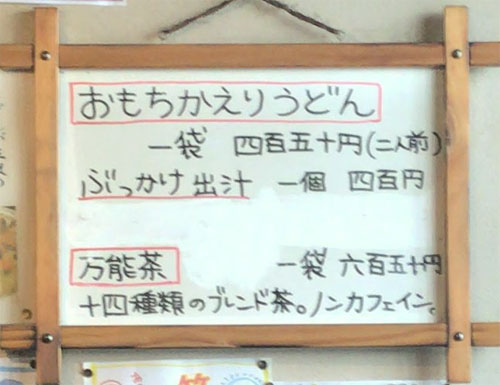 おもちかえりうどん
一袋 四百五十円(二人前)
ぶっかけ出汁 一個 四百円
万能茶 一袋 六百五十円
十四種類のブレンド茶。ノンカフェイン。